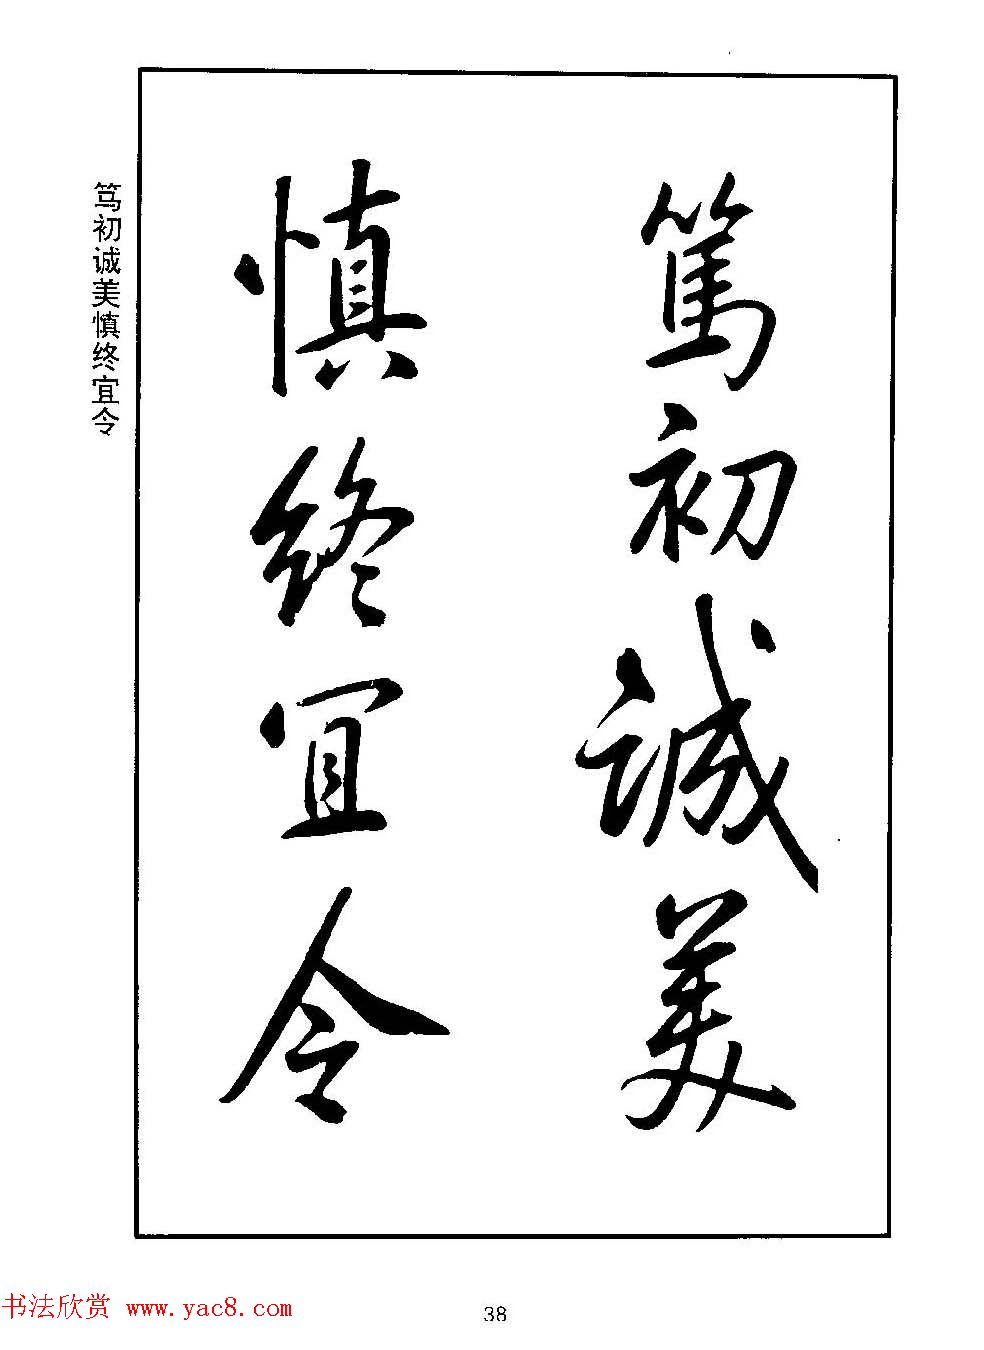 篤初誠美
慎終宜令
笃初诚美慎终宜令
书法欣赏 www.yac8.com
38